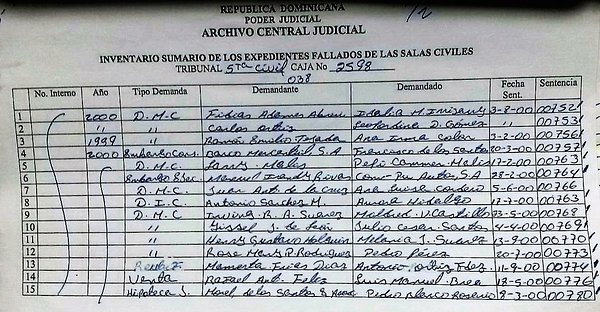 REPUBLICA DOMINICANA
PODER JUDICIAL
12
ARCHIVO CENTRAL JUDICIAL
INVENTARIO SUMARIO DE LOS EXPEDIENTES FALLADOS DE LAS SALAS CIVILES
TRIBUNAL 5ta civil CAJA No 2598
038
No. Interno Año Tipo Demanda Demandante Demandado Fecha Sent. Sentencia
1 2000 D.M.C 3-8-00 00752
2 " " Carlos Ortiz Leopoldina D. Gómez " 00753
3 1999 " Ramón Emilio Tejada Ana Irma 3-2-00 00756
4 2000 Embargo Cons. Banco Mercantil, S.A Francisco de los Santos 20-3-00 00757
5 D.M.C. 17-2-00 00763
6 Embargo Ejec. Manuel Rivas Autos, S.A 28-2-00 00764
7 D.M.C Juan Ant. de la Cruz Ana Luisa Cordero 5-6-00 00766
8 D.I.C Antonio Sanchez M. Aurora Hidalgo 17-7-00 00763
9 D.M.C Irving R. A. Suarez Mildred V. Castillo 23-5-00 00768
10 " Gissel J. de León Julio Cesar Santos 4-4-00 00769
11 " Henry Gustavo Holguin Melania J. Suarez 13-9-00 00770
12 " Rose Mery P. Rodriguez Pedro Pérez 20-7-00 00773
13 Antonio Ortiz Fdez. 11-9-00 00774
14 Venta Rafael Ant. Feliz Luis Manuel Brea 18-5-00 00776
15 Hipoteca J. de los Santos & Pedro Blanco Rosario 8-3-00 00780